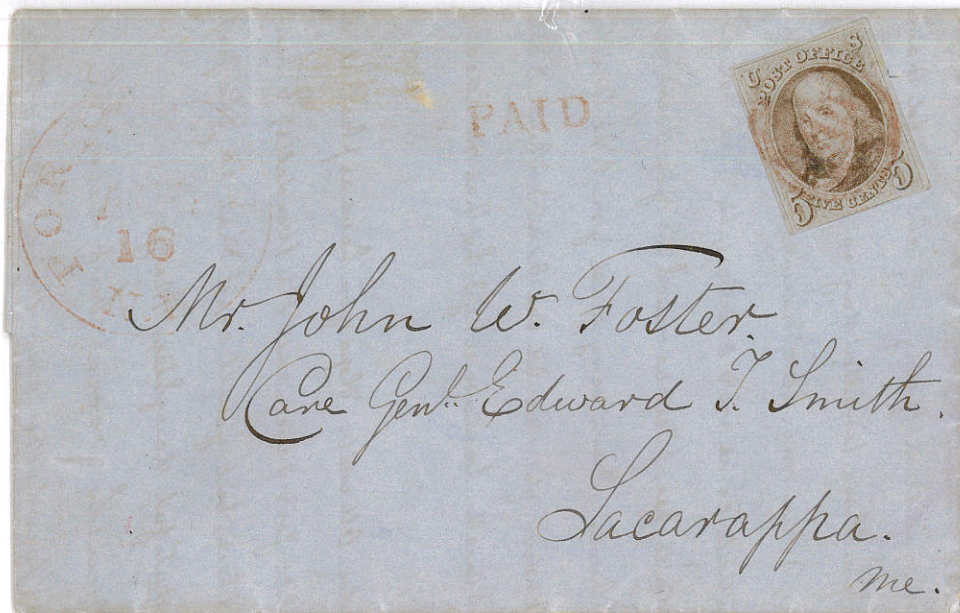 PAID
U S
POST OFFICE
FIVE CENTS
5 5
16
Mr. John W. Foster.
Care Genl. Edward T. Smith.
Sacarappa.
Me.